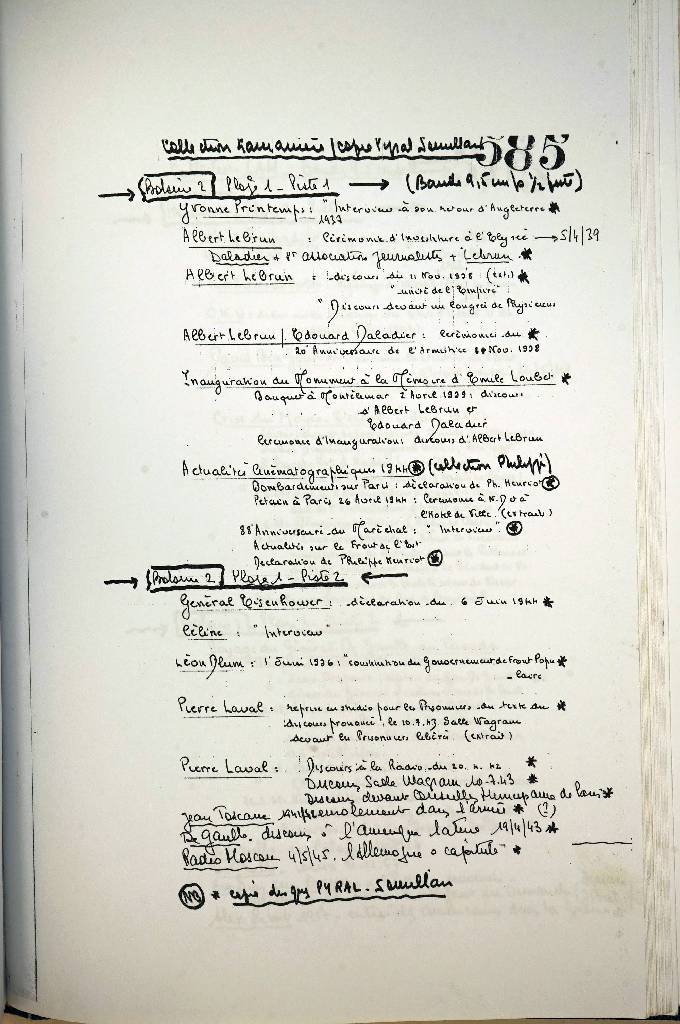 Collection / copie Pyral Semullan
585
Bobine 2 Plage 1 - Piste 1 → (Bande 9,5 cm/s ½ piste)
Yvonne Printemps: "Interview à son retour d'Angleterre *
1937
Albert LeBrun : Cérémonie d'Investiture à l'Elysée → 5/4/39
Daladier + Pt Association Journalists + Lebrun. *
Albert LeBrun : discours du 11 Nov. 1938 : (ext.) *
"unité de l'Empire"
"Discours devant un Congrès de Physiciens
Albert Lebrun / Edouard Daladier : Cérémonies du *
20è Anniversaire de l'Armistice 11 Nov. 1938
Inauguration du Monument à la Mémoire d'Emile Loubet *
Banquet à Montélimar 2 Avril 1939 : discours
d'Albert LeBrun et
Edouard Daladier
Cérémonie d'Inauguration: discours d'Albert LeBrun
Actualités Cinématographiques 1944 * (collection Philippi)
Bombardements sur Paris : déclaration de Ph. Henriot *
Petain à Paris 26 Avril 1944 : Ceremonie à N.D et à
l'Hotel de Ville. (extrait)
88è Anniversaire du Maréchal : "Interview". *
Actualités sur le Front de l'Est
Declaration de Philippe Henriot *
→ Bobine 2 Plage 1 - Piste 2 ←
Général Eisenhower : déclaration du 6 Juin 1944 *
Céline : "Interview"
Léon Blum : 1er Juin 1936 : "constitution du Gouvernement de Front Popu *
- laire
Pierre Laval : reprise en studio pour les Prisonniers du texte du *
discours prononcé le 10.7.43 Salle Wagram
devant les Prisonniers libérés (extrait)
Pierre Laval : Discours à la Radio du 20. 4. 42 *
Discours Salle Wagram 10-7.43 *
Discours devant Conseillers Municipaux de Paris *
Jean Toscane dans l'armée * (?)
De Gaulle. discours à l'amerique latine 19/4/43 *
Radio Moscou 4/5/45. l'Allemagne a capitulé *
NB * copie disques PYRAL - Semullan